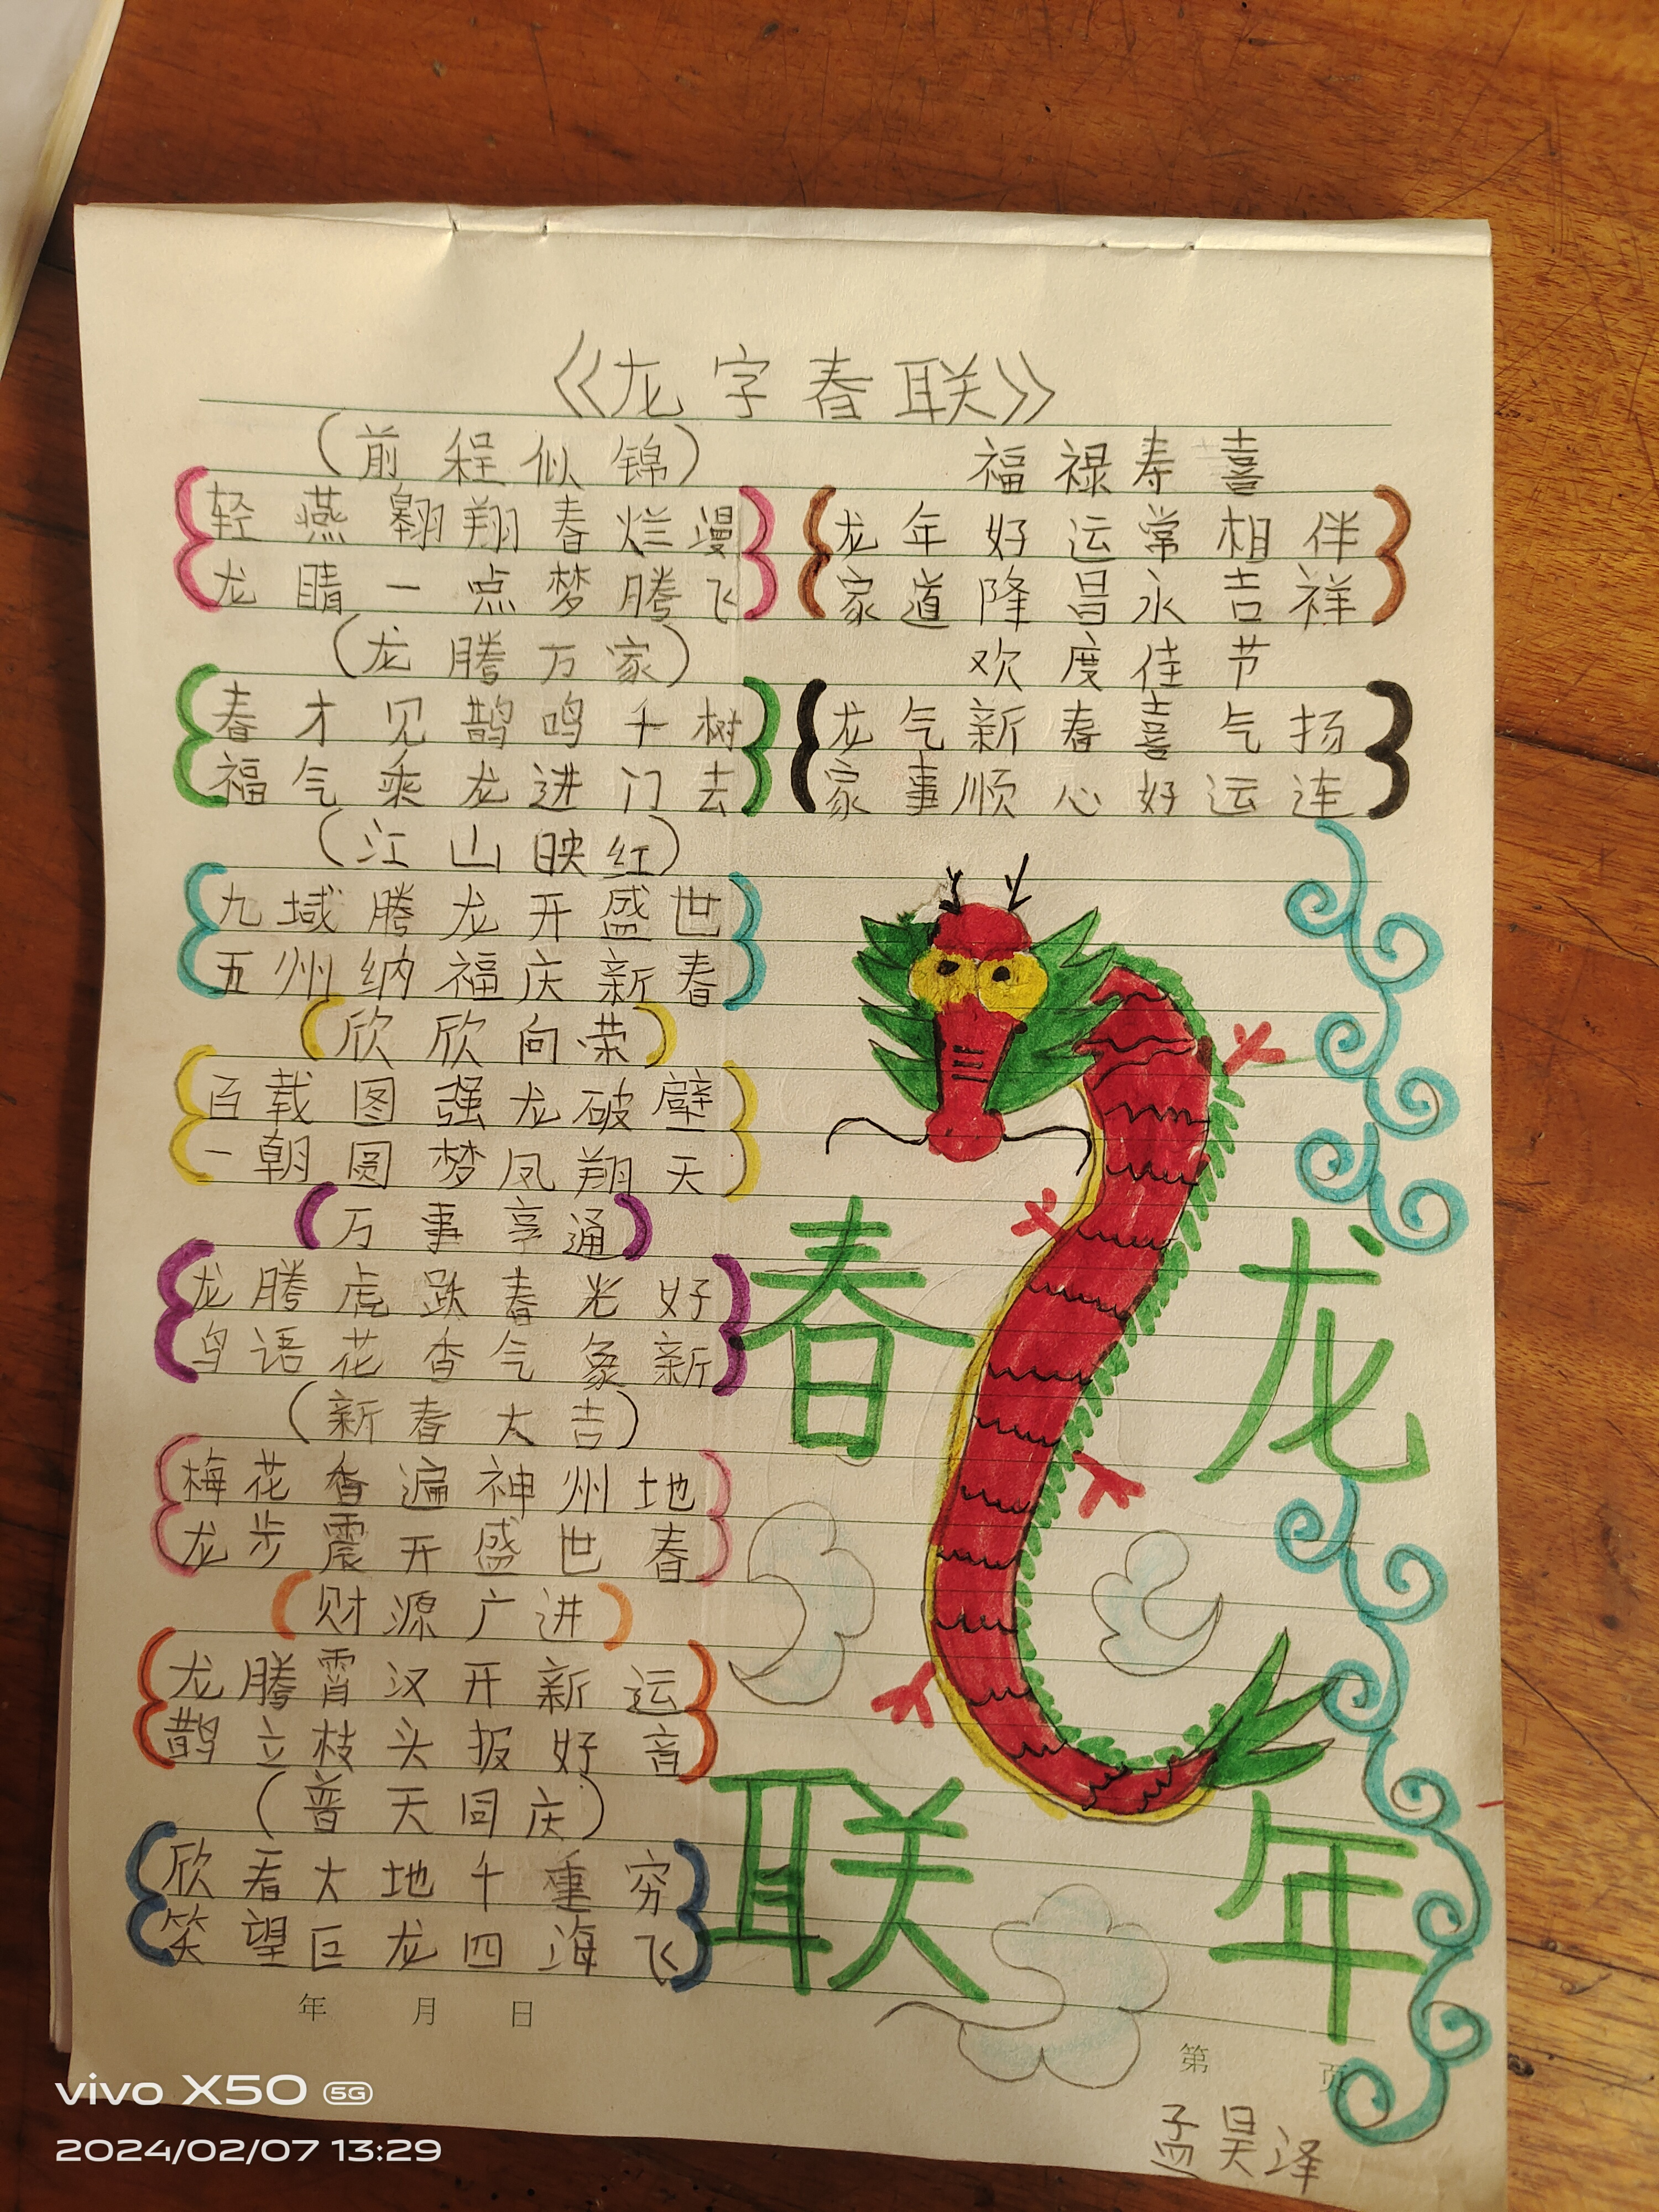 《龙字春联》
(前程似锦)
轻燕翱翔春烂漫
龙睛一点梦腾飞
(龙腾万家)
春才见鹊鸣千树
福气乘龙进门去
(江山映红)
九域腾龙开盛世
五州纳福庆新春
(欣欣向荣)
百载图强龙破壁
一朝圆梦凤翔天
(万事享通)
龙腾虎跃春光好
鸟语花香气象新
(新春大吉)
梅花香遍神州地
龙步震开盛世春
(财源广进)
龙腾霄汉开新运
鹊立枝头报好音
(普天同庆)
欣看大地千重穷
笑望巨龙四海飞
福禄寿喜
龙年好运常相伴
家道隆昌永吉祥
欢度佳节
龙气新春喜气扬
家事顺心好运连
龙年
春联
年 月 日
第 页
孟昊泽
vivo X50 5G
2024/02/07 13:29